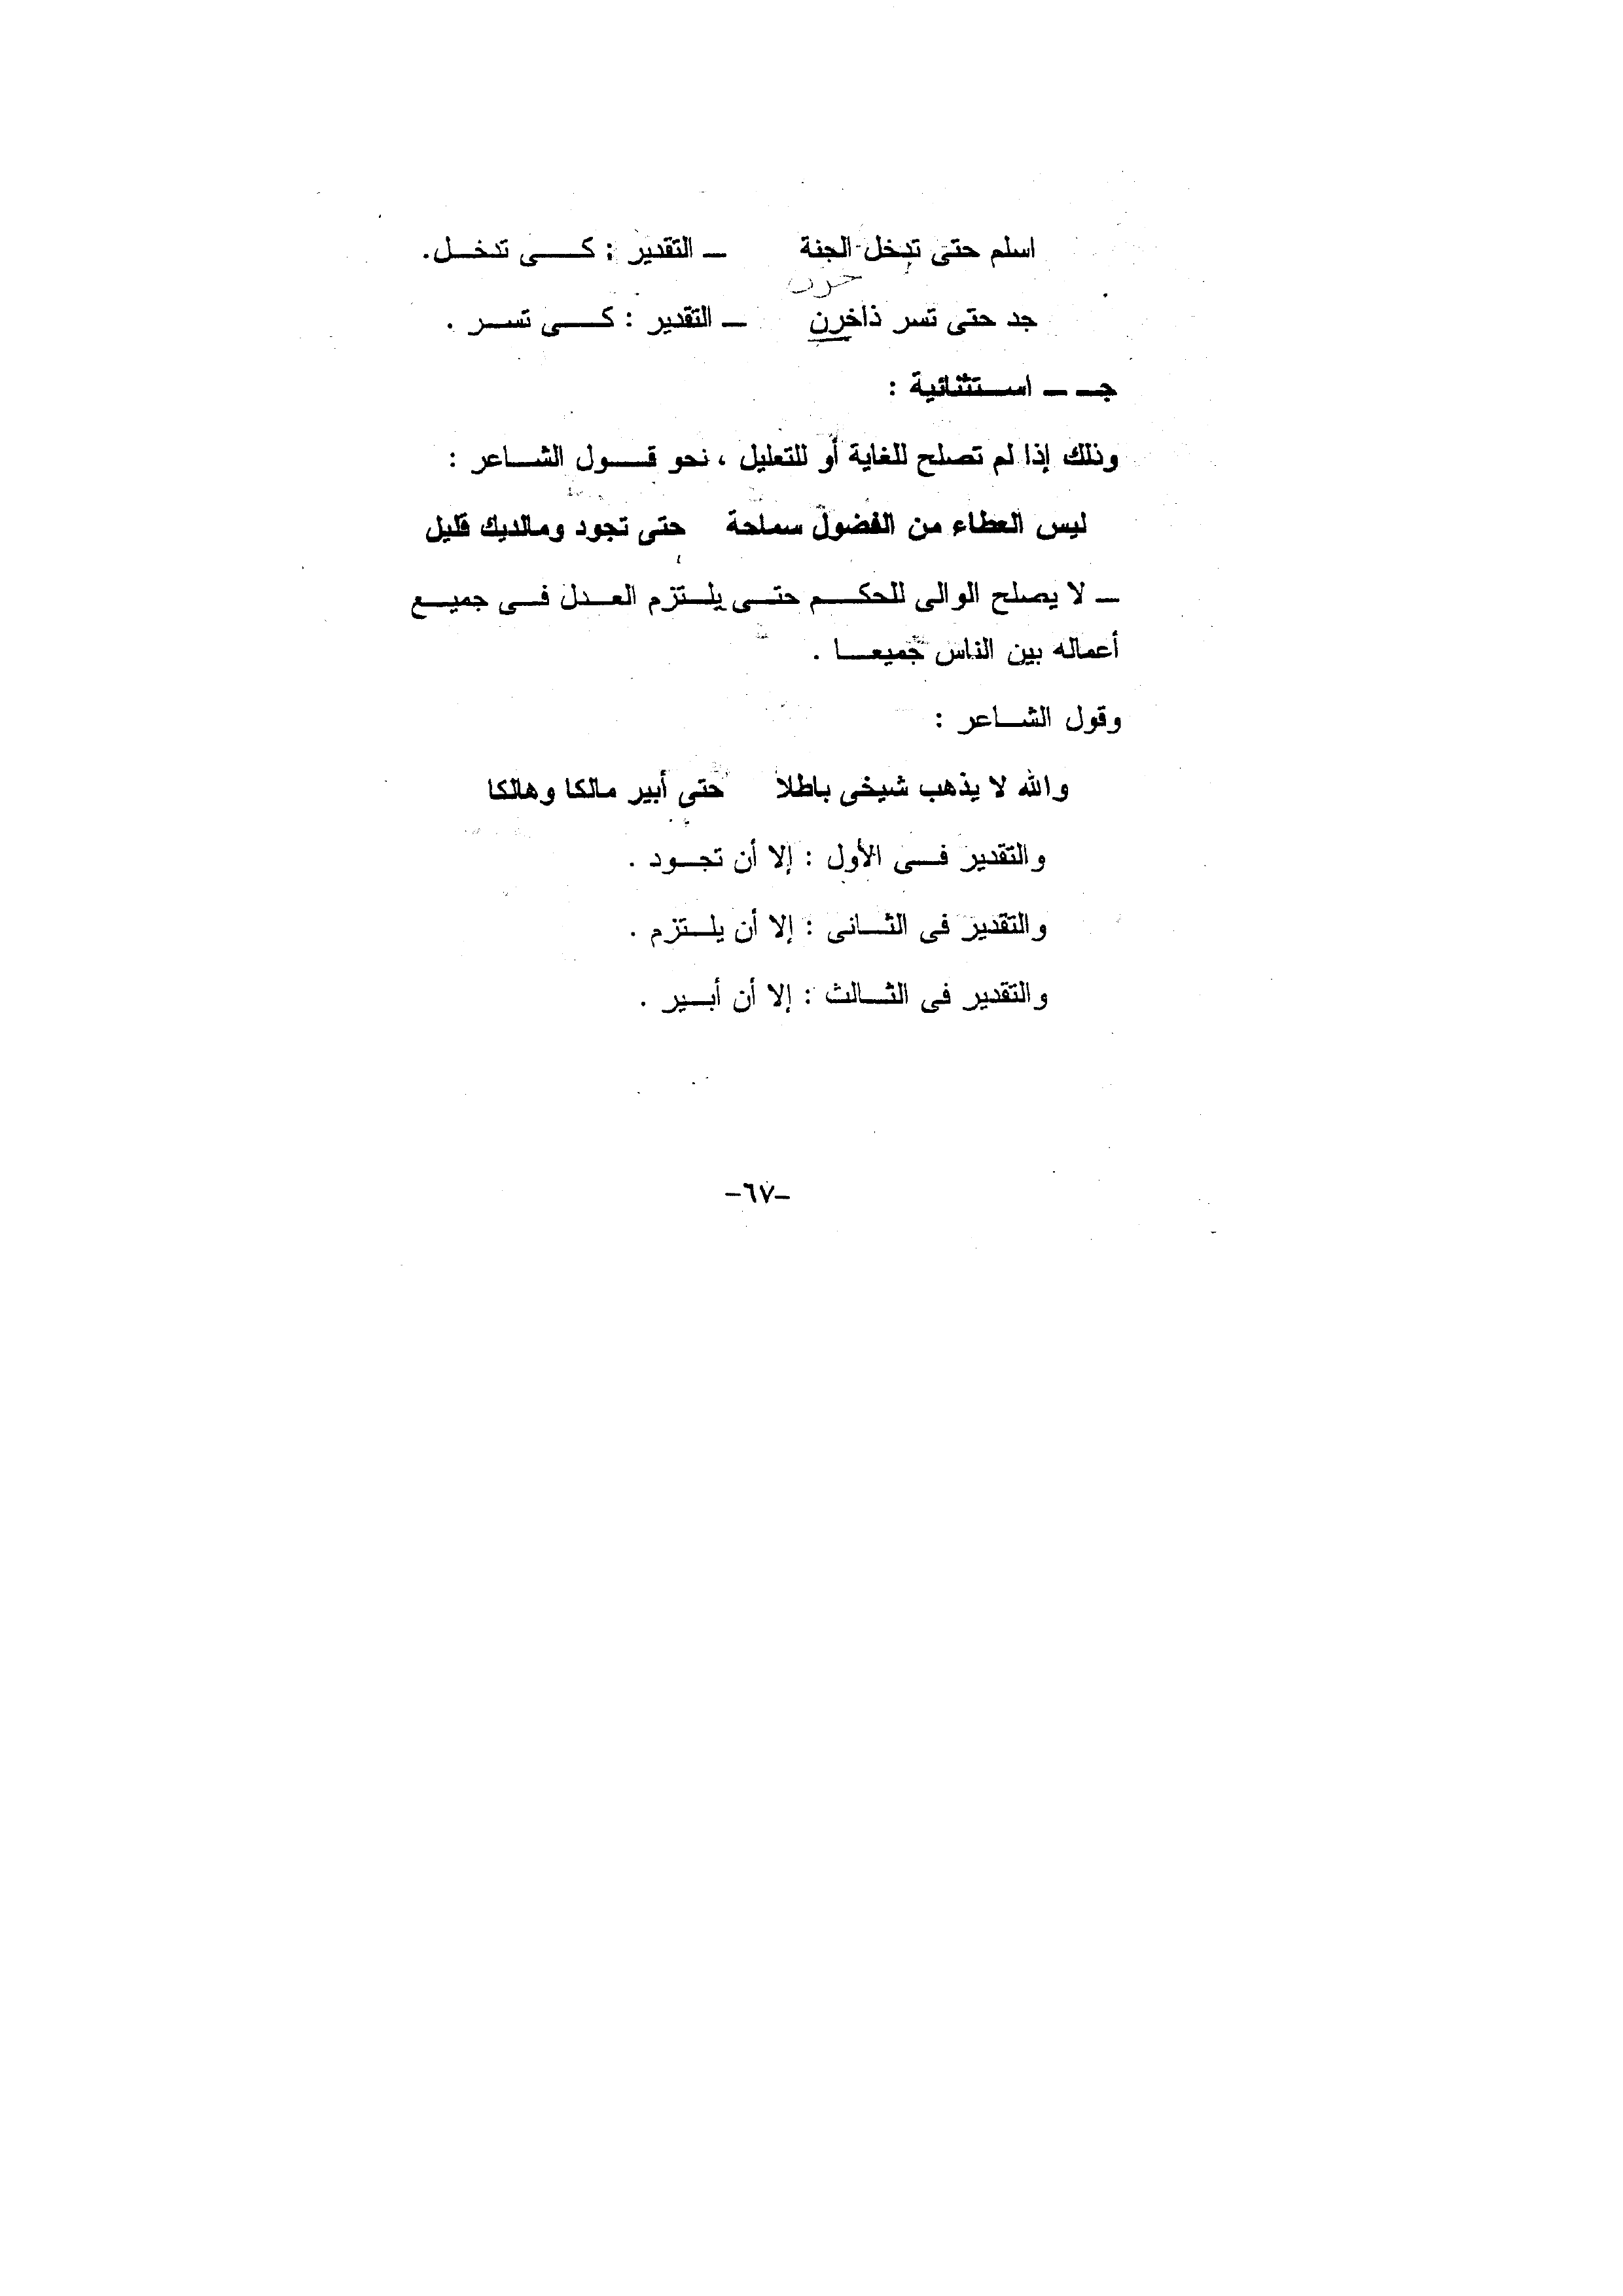 اسلم حتى تدخل الجنة ــ التقدير : كـــى تدخــل.
حزن
جد حتى تسر ذاخرن ــ التقدير : كـــى تســر .
جــ ــ اســتثنائية :
وذلك إذا لم تصلح للغاية أو للتعليل ، نحو قــول الشــاعر :
ليس العطاء من الفضول سماحة حتى تجود ومالديك قليل
ــ لا يصلح الوالى للحكــم حتــى يلــتزم العــدل فــى جميــع
أعماله بين الناس جميعــا .
وقول الشــاعر :
والله لا يذهب شيخى باطلا حتى أبير مالكا وهالكا
والتقدير فــى الأول : إلا أن تجــود .
والتقدير فى الثــانى : إلا أن يلــتزم .
والتقدير فى الثــالث : إلا أن أبــير .
-٦٧-